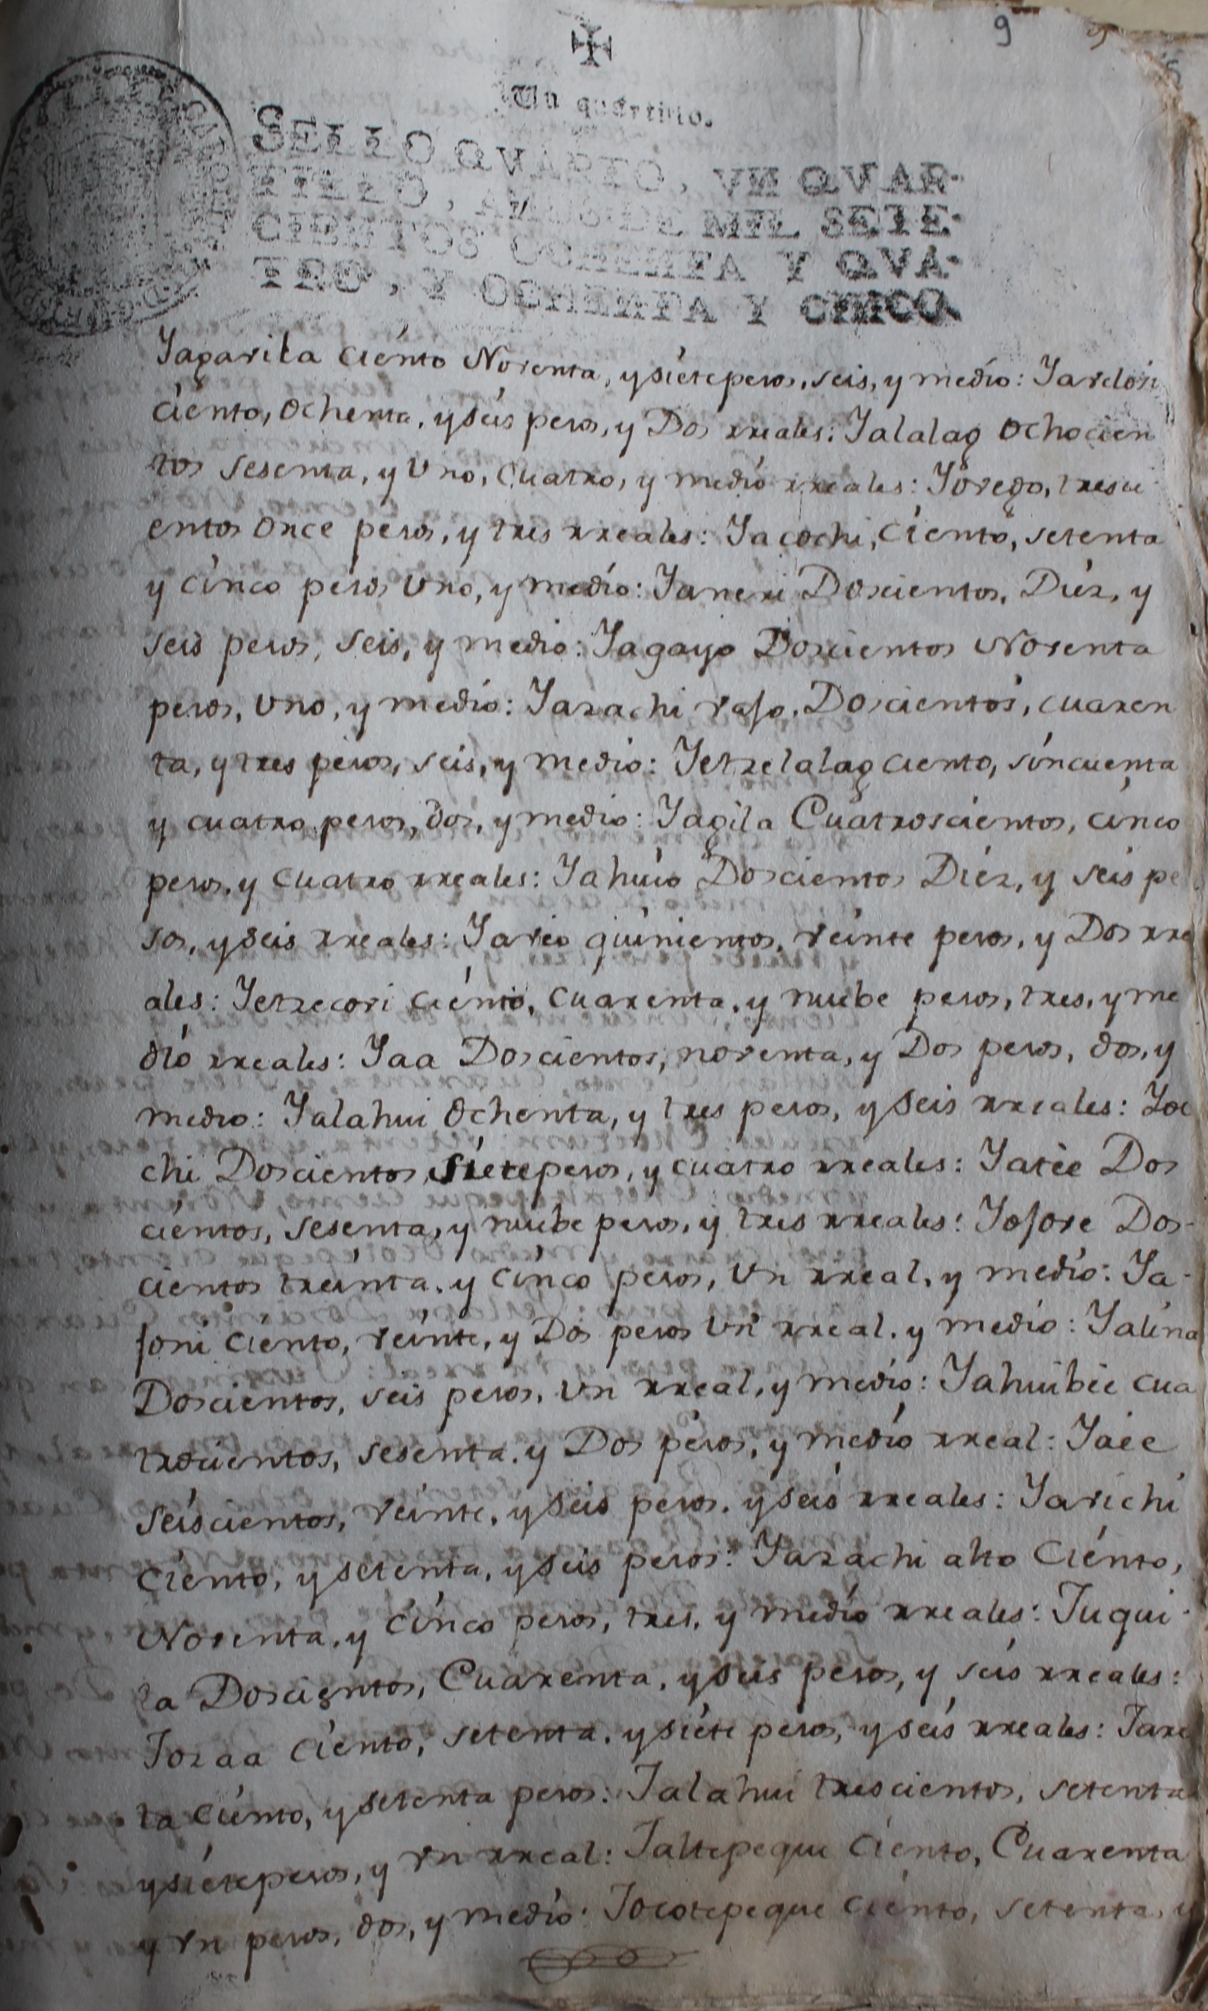 9
Un quartillo.
SELLO QVARTO, VN QVAR-
TILLO, AÑOS DE MIL SETE-
CIENTOS OCHENTA Y QVA-
TRO, Y OCHENTA Y CINCO.
Yagavila ciento Noventa, y siete pesos, seis, y medio:
ciento, ochenta, y seis pesos, y Dos rreales: Yalalag ochocien
tos sesenta, y Uno, Cuatro, y medio rreales: Yovego, tresci
entos once pesos, y tres rreales: Yacochi, Ciento, setenta
y cinco pesos Uno, y medio: Yaneri Doscientos, Diéz, y
seis pesos, seis, y medio: Yagayo Doscientos Noventa
pesos, Uno, y medio: Yazachi vaso, Doscientos, cuaren
ta, y tres pesos, seis, y medio: Yetzelalag ciento, sincuenta
y cuatro pesos, dos, y medio: Yagila Cuatroscientos, cinco
pesos, y Cuatro rreales: Yahuio Doscientos Diéz, y seis pe
sos, y seis rreales: Yaveo quinientos, veinte pesos, y Dos rre
ales: Yetzecovi ciento, Cuarenta, y nuebe pesos, tres, y me
dio rreales: Yaa Doscientos, noventa, y Dos pesos, dos, y
medio: Yalahui Ochenta, y tres pesos, y seis rreales: Yoe
chi Doscientos, siete pesos, y cuatro rreales: Yateé Dos
cientos, sesenta, y nuebe pesos, y tres rreales: Yosove Dos-
cientos treinta, y cinco pesos, Un rreal, y medio: Ya-
soni ciento, veinte, y Dos pesos Un rreal, y medio: Yalina
Doscientos, seis pesos, Un rreal, y medio: Yahuibee cua
trocientos, sesenta, y Dos pesos, y medio rreal: Yaee
Seiscientos, veinte, y seis pesos, y seis rreales: Yavichi
Ciento, y setenta, y seis pesos: Yazachi alto Ciento,
Noventa, y cinco pesos, tres, y medio rreales: Juqui-
la Doscientos, Cuarenta, y seis pesos, y seis rreales:
Jozaa ciento, setenta, y siete pesos, y seis rreales: Jare
ta ciento, y setenta pesos: Jalahui trescientos, setenta
y siete pesos, y Un rreal: Jaltepeque Ciento, Cuarenta
y Un pesos, dos, y medio: Jocotepeque ciento, setenta, y